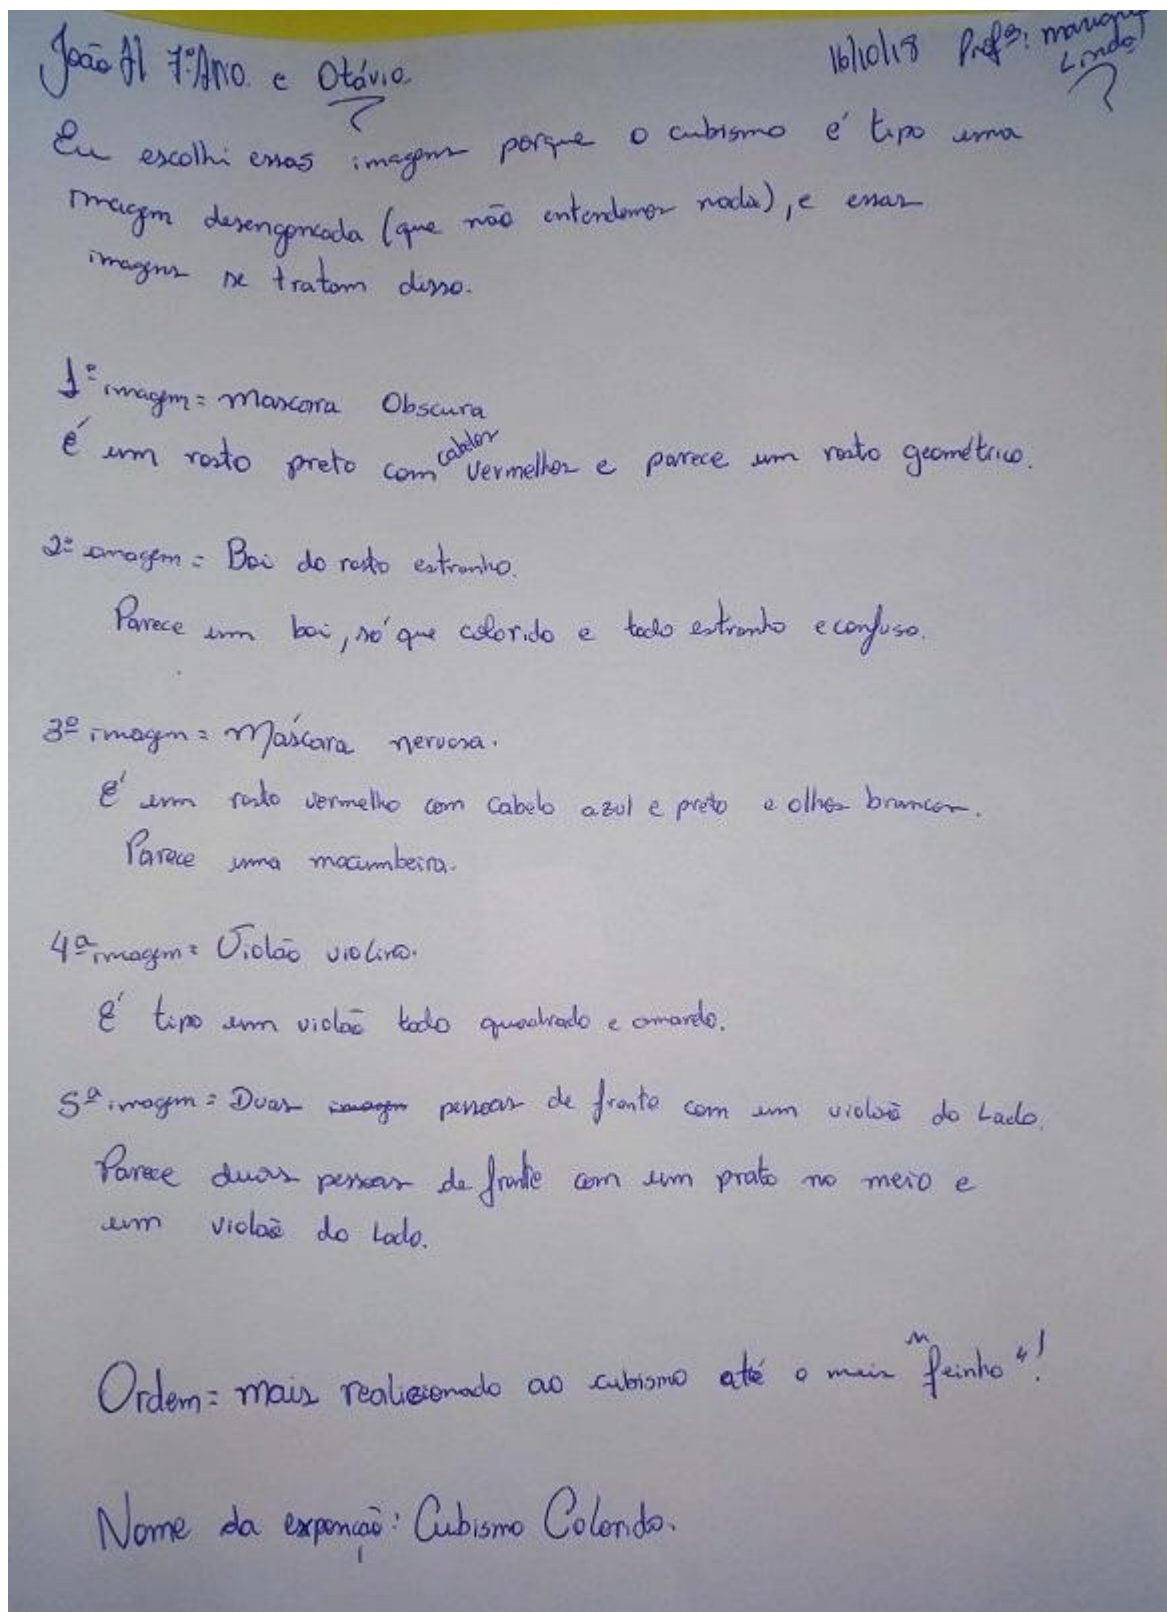 João H 7ºAno. e Otávio. 16/10/18 Profª:
Linda!
Eu escolhi essas imagens porque o cubismo é tipo uma
imagem desengoncada (que não entendemos nada), e essas
imagens se tratam disso.
1ª imagem = Mascara Obscura
é um rosto preto com cabelos vermelhos e parece um rosto geométrico.
2ª imagem = Boi do rosto estranho.
Parece um boi, só que colorido e todo estranho e confuso.
3ª imagem = Máscara nervosa.
É um rosto vermelho com cabelo azul e preto e olhos brancos.
Parece uma macumbeira.
4ª imagem = Violão violino.
É tipo um violão todo quadrado e amarelo.
5ª imagem = Duas imagem pessoas de frente com um violão do Lado.
Parece duas pessoas de frente com um prato no meio e
um violão do Lado.
Ordem = mais realicionado ao cubismo até o mais "feinho"!
Nome da exposição: Cubismo Colorido.